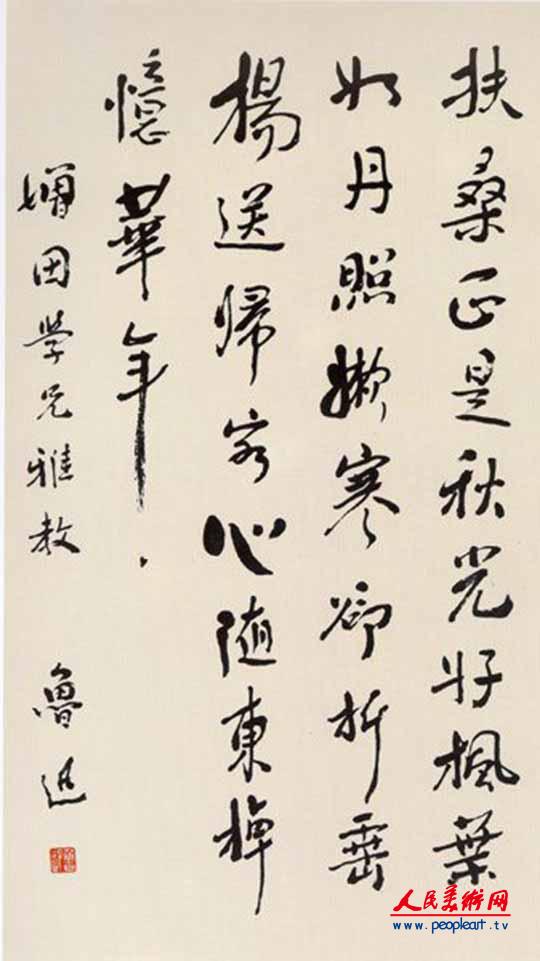 扶桑正是秋光好楓葉
如丹照嫩寒卻折垂
楊送歸客心随東棹
憶華年
增田学兄雅教
魯迅
人民美術网
www.peopleart.tv